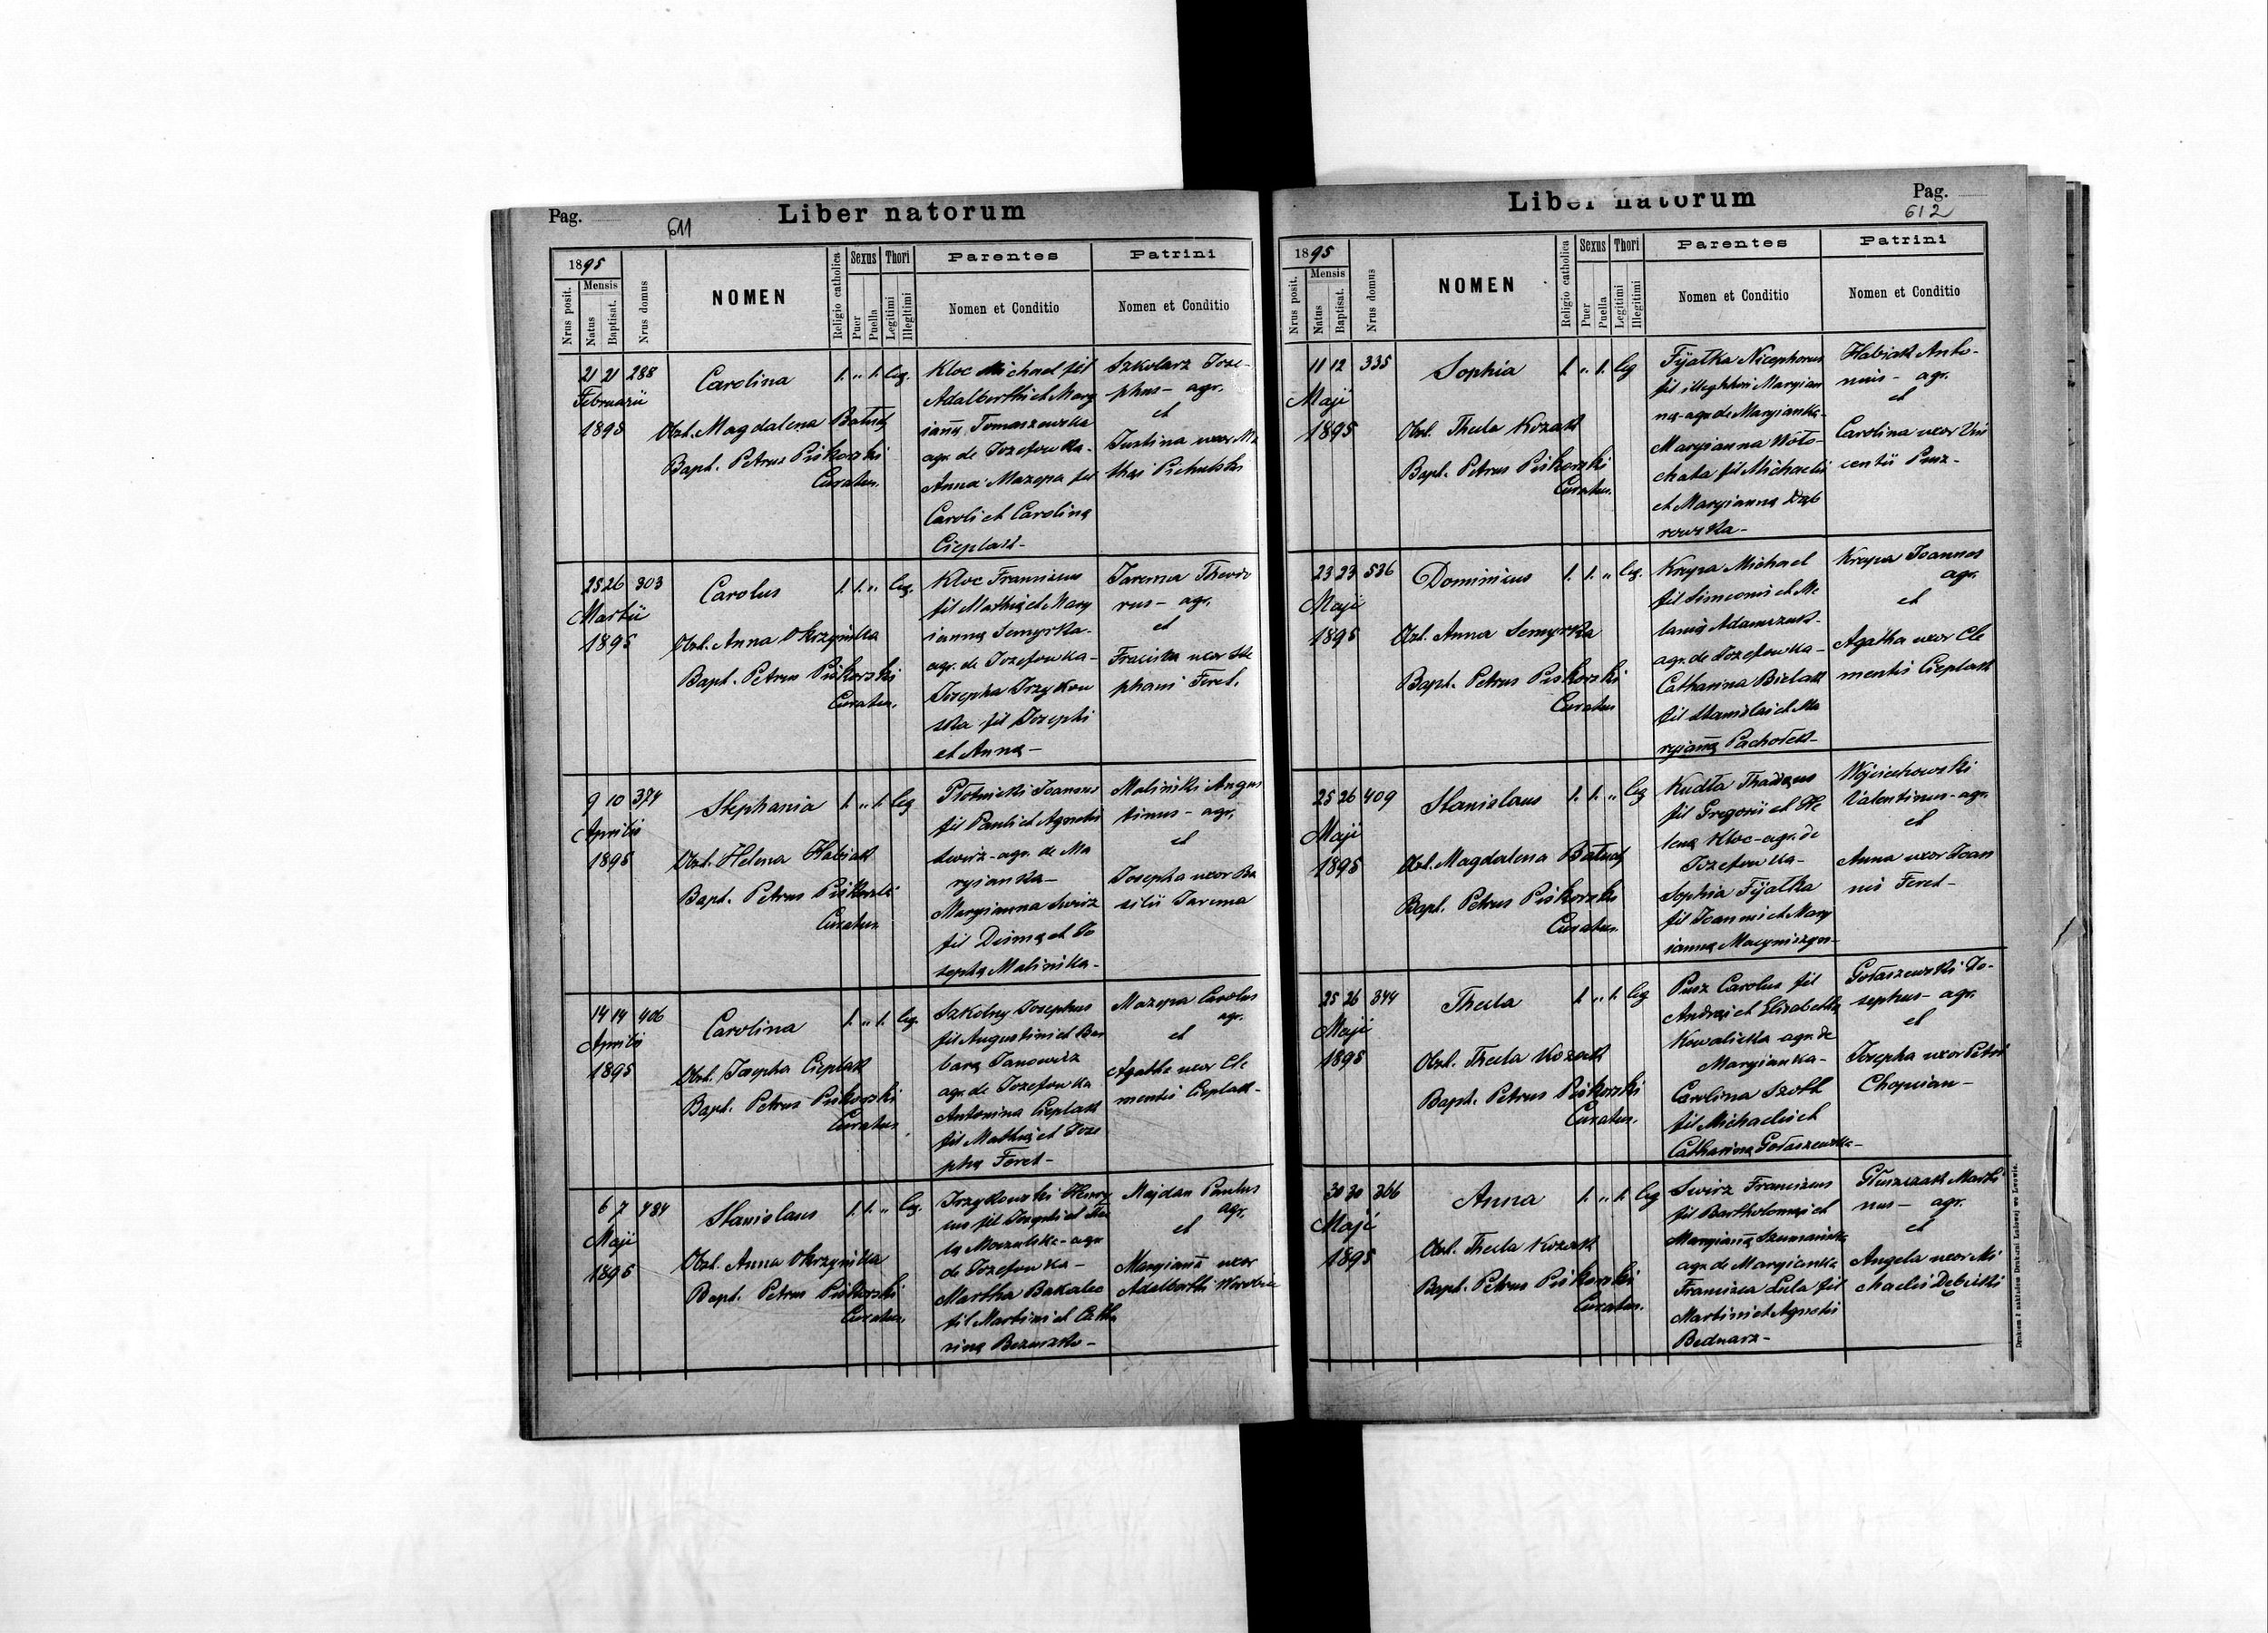 Pag.
611
Liber natorum
1895
Nrus posit.
Mensis
Natus
Baptisat.
Nrus domus
NOMEN
Religio catholica
Sexus
Puer
Puella
Thori
Legitimi
Illegitimi
Parentes
Nomen et Conditio
Patrini
Nomen et Conditio
21 21 288
Februarii
1895
Carolina
1. " 1. leg.
Obst. Magdalena
Bapt. Petrus Piskorski
Curatus.
Kloc Michael fil
Adalberthi et Mary
ianną Tomaszewska
agr. de Jozefowka -
Anna Mazepa fil
Caroli et Caroliną
Cieplak -
Szkolarz Jose-
phus - agr.
et
Justina uxor Ma
thaę
25 26 303
Martii
1895
Carolus
1. 1. " leg.
Obst. Anna Okrzyńska
Bapt. Petrus Piskorski
Curatus.
Kloc Franciscus
fil Mathię et Mary
ianną Semyrka -
agr. de Jozefowka -
Josepha Irzykow
ska fil Josephi
et Anną -
Jarema Theodo
rus - agr.
et
uxor Ste
phani Feret.
9 10 374
Aprilis
1895
Stephania
1. " 1. leg
Obst. Helena Habiak
Bapt. Petrus Piskorski
Curatus.
Płotnicki Joannes
fil Pauli et Agnetis
Swirz - agr. de Ma
ryianka -
Maryianna Swirz
fil Dismę et Jo
sephę Malinska -
Malinski Augus
tinus - agr.
et
Josepha uxor Ba
silii Jarema
14 14 406
Aprilis
1895
Carolina
1. " 1. leg.
Obst. Josepha Cieplak
Bapt. Petrus Piskorski
Curatus.
Szkolny Josephus
fil Augustini et Bar
barą Janowicz
agr. de Jozefowka
Antonina Cieplak
fil Mathię et Jose
phą Feret -
Mazepa Carolus
agr.
et
Agatha uxor Cle
mentis Cieplak -
6 7 484
Maji
1895
Stanislaus
1. 1. " leg.
Obst. Anna Okrzyńska
Bapt. Petrus Piskorski
Curatus.
Irzykowski Henry
cus fil Josephi et
agr
de Jozefowka -
Martha Bakalec
fil Martini et Catha
riną
Majdan Paulus
agr.
et
Maryiana uxor
Adalberthi
Liber natorum
Pag.
612
1895
Nrus posit.
Mensis
Natus
Baptisat.
Nrus domus
NOMEN
Religio catholica
Sexus
Puer
Puella
Thori
Legitimi
Illegitimi
Parentes
Nomen et Conditio
Patrini
Nomen et Conditio
11 12 335
Maji
1895
Sophia
1. " 1. leg
Obst. Thecla Kozak
Bapt. Petrus Piskorski
Curatus.
Fijałka Nicephorus
fil illeghthimi Maryian
nę - agr. de Maryianka -
Maryianna Woło-
chata fil Michaelis
et Maryianną Dąb
rowska -
Habiak Anto-
nius - agr.
et
Carolina uxor Vin
centii Pusz -
23 23 536
Maji
1895
Dominicus
1. 1. " leg.
Obst. Anna Semyrka
Bapt. Petrus Piskorski
Curatus
Krepa Michael
fil Simeonis et Me
lanią Adamczuk -
agr. de Jozefowka -
Catharina Bielak
fil Stanislai et Ma
ryianą Pachołek -
Krepa Joannes
agr.
et
Agatha uxor Cle
mentis Cieplak
25 26 409
Maji
1895
Stanislaus
1. 1. " leg
Obst. Magdalena
Bapt. Petrus Piskorski
Curatus.
Kudła Thadęus
fil Gregorii et He
leną Kloc - agr. de
Jozefowka -
Sophia Fijałka
fil Joannis et Mary
ianną
Wojciechowski
Valentinus - agr.
et
Anna uxor Joan
nis Feret -
25 26 344
Maji
1895
Thecla
1 " 1. leg
Obst. Thecla Kozak
Bapt. Petrus Piskorski
Curatus.
Pusz Carolus fil
Andreę et Elisabethę
Kowalicka agr. de
Maryianka -
Carolina Szott
fil Michaelis et
Cathariną Gołaszewska -
Gołaszewski Jo-
sephus - agr.
et
Josepha uxor Petri
Chopcian -
30 30 366
Maji
1895
Anna
1. " 1. leg
Obst. Thecla Kozak
Bapt. Petrus Piskorski
Curatus.
Swirz Franciscus
fil Bartholomęi et
Maryianą Szumanska
agr. de Maryianka
Francisca Lula fil
Martini et Agnetis
Bednarz -
Głuszczak Marti
nus - agr.
et
Angela uxor Mi
chaelis Dębicki
Drukiem i nakładem Drukarni Ludowej we Lwowie.